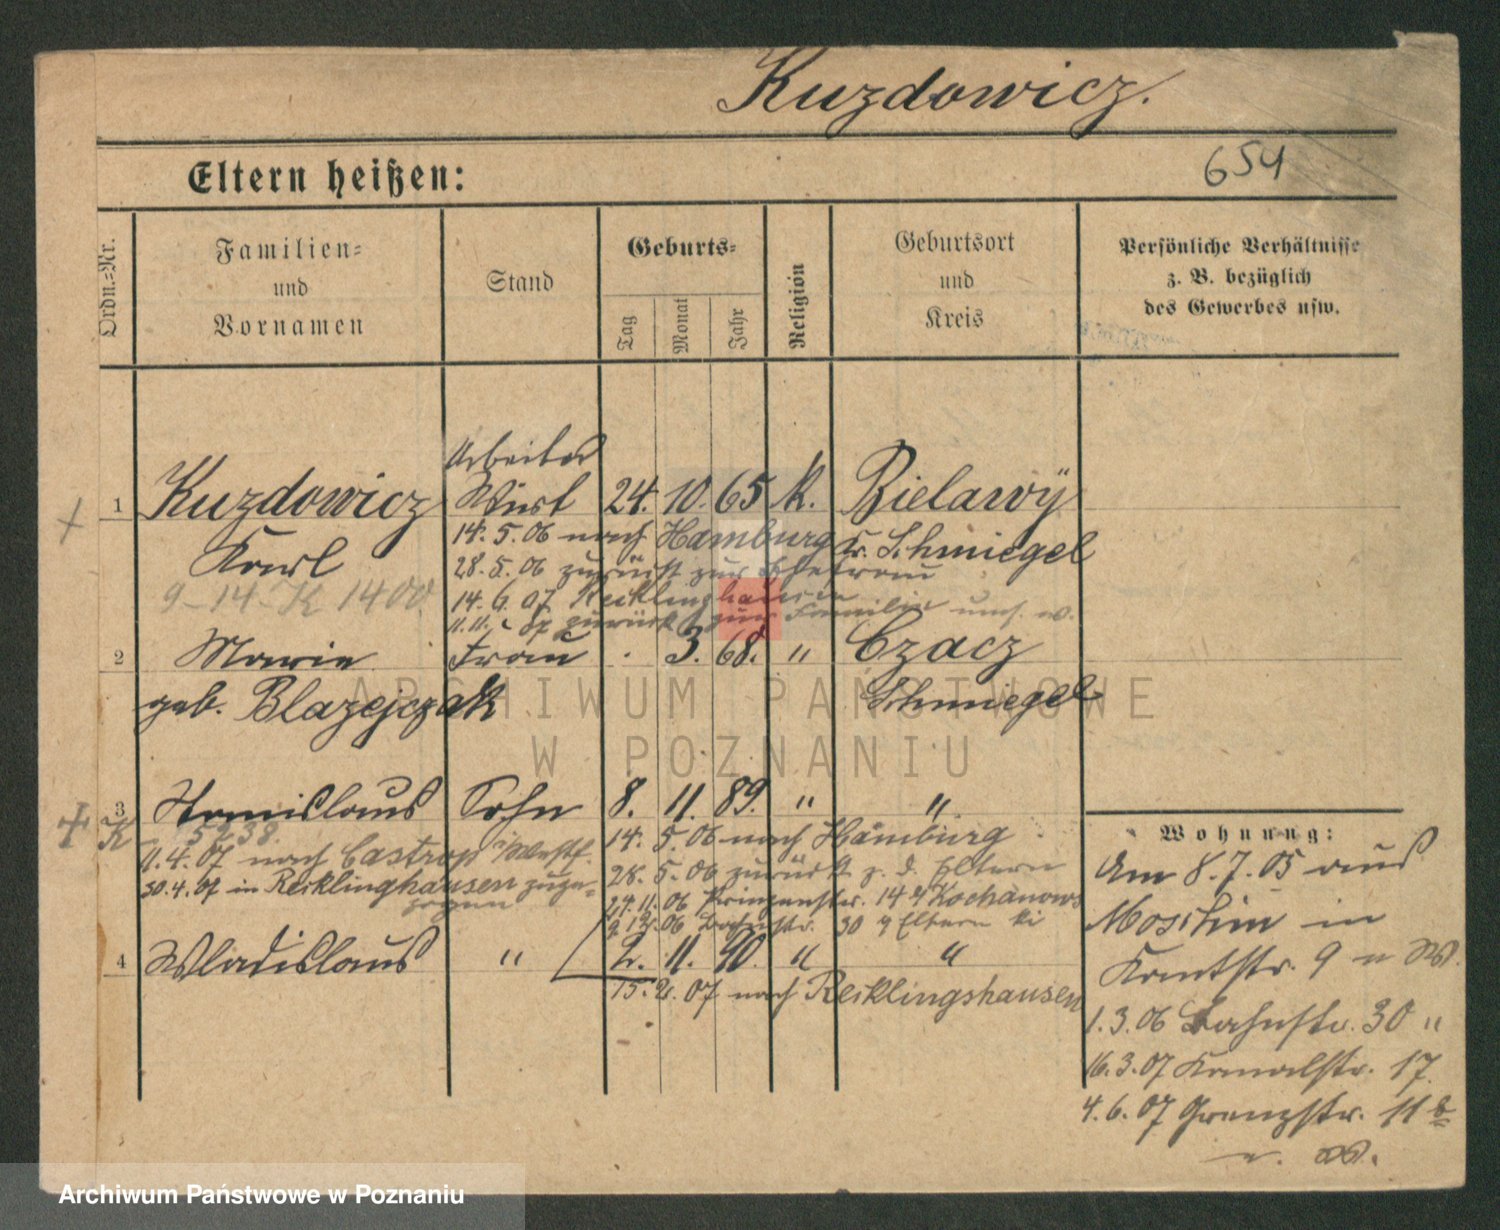 Kuzdowicz.
654
Eltern heißen:
Ordn.=Nr.
Familien=
und
Vornamen
Stand
Geburts=
Tag
Monat
Jahr
Religion
Geburtsort
und
Kreis
Persönliche Verhältnisse
z. B. bezüglich
des Gewerbes usw.
Arbeiter
1 Kuzdowicz Wirt 24. 10. 65 k. Bielawÿ
Karl
14. 5. 06 nach Hamburg
Kr. Schmiegel
28. 5. 06 zurück zur Ehefrau
9-14-K 1400
14. 6. 07 Recklinghausen
11. 11. 07 zurück zur Familie
2 Marie Frau . 3. 68. " Czacz
geb. Blazejczak
Schmiegel
3 Stanislaus Sohn 8. 11. 89. " "
K
5238.
14. 5. 06 nach Hamburg
11. 4. 07 nach Castrop i/Westf.
28. 5. 06 zurück z. d. Eltern
30. 4. 07 in Recklinghausen zuge=
zogen
24. 11. 06 Prinzenstr. 14
9. 12. 06 Bahnstr. 30 Eltern
4 Wladislaus " 2. 11. 90. " "
15. 2. 07 nach Recklingshausen
Wohnung:
Am 8. 7. 05 aus
Moschin in
Kantstr. 9 n W.
1. 3. 06 Bahnstr. 30 "
16. 3. 07 Kanalstr. 17.
4. 6. 07 Grenzstr. 11 b
ARCHIWUM PAŃSTWOWE
W POZNANIU
Archiwum Państwowe w Poznaniu